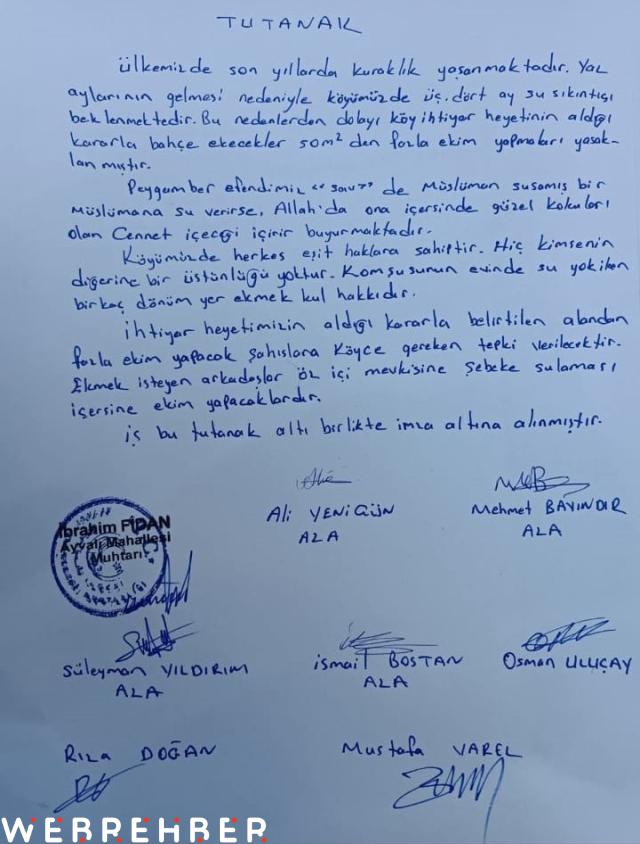 TUTANAK
Ülkemizde son yıllarda kuraklık yaşanmaktadır. Yaz
aylarının gelmesi nedeniyle köyümüzde üç. dört ay su sıkıntıçı
beklenmektedir. Bu nedenlerden dolayı köy ihtiyar heyetinin aldığı
kararla bahçe ekecekler 50m² den fazla ekim yapmaları yasak-
lanmıştır.
Peygamber efendimiz "sav" de Müslüman susamış bir
Müslümana su verirse, Allah'da ona içersinde güzel kokuları
olan Cennet içeceği içirir buyurmaktadır.
Köyümüzde herkes eşit haklara sahiptir. Hiç kimsenin
diğerine bir üstünlüğü yoktur. Komşusunun evinde su yok iken
birkaç dönüm yer ekmek kul hakkıdır.
İhtiyar heyetimizin aldığı kararla belirtilen alandan
fazla ekim yapacak şahıslara Köyce gereken tepki verilecektir.
Ekmek isteyen arkadaşlar öz içi mevkisine şebeke sulaması
içersine ekim yapacaklardır.
iş bu tutanak altı birlikte imza altına alınmıştır.
İbrahim FİDAN
Ayvalı Mahallesi
Muhtarı
Ali YENİGÜN
AZA
Mehmet BAYINDIR
AZA
Süleyman YILDIRIM
AZA
İsmail BOSTAN
AZA
Osman ULUÇAY
Rıza DOĞAN
Mustafa VAREL
WEBREHBER